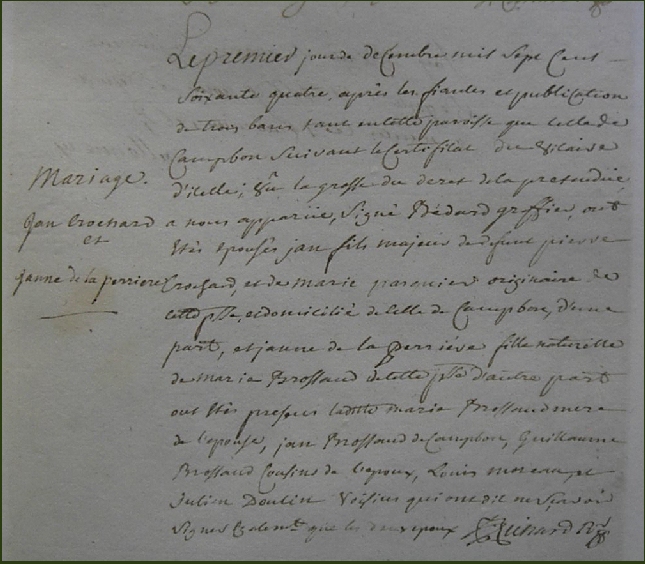 Le premier jour decembre mil sept cent
soixante quatre, après les fiances et publication
de trois bans tant en cette paroisse que celle de
Campbon suivant le certificat du vicaire
d'icelle; vû la grosse du decret de la pretenduë
Mariage.
a nous apparuë, signé Bédard greffier, ont
Jan Crochard
et
Janne de la perriere
étés epousés jan fils majeur de defunt pierre
Crochard, et de marie pasquier originaire de
cette psse, et domicilié de celle de Campbon, d'une
part, et janne de la perriére fille naturelle
de marie Brossaud de cette psse d'autre part
ont étés presens laditte marie Brossaud mere
de l'epouse, jan Brossaud de Campbon, Guillaume
Brossaud Cousins de l'epoux, Louis moreau et
Julien Doulin voisins qui ont dit ne sçavoir
signer que les deux epoux